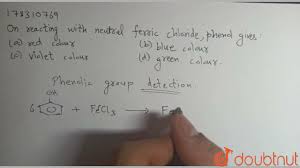 178310769
On reacting with neutral ferric chloride, phenol gives:
(a) red colour (b) blue colour
(c) violet colour (d) green colour.
Phenolic group detection
OH
6 + FeCl3 → Fe
doubtnut